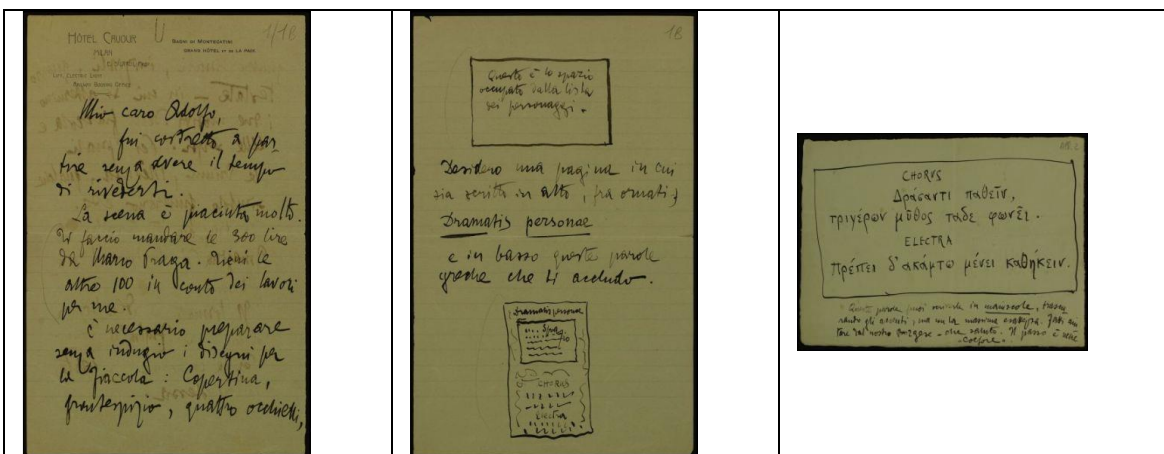 1/18
HÔTEL CAVOUR
MILAN
BAGNI DI MONTECATINI
GRAND HÔTEL ET DE LA PAIX
LIFT, ELECTRIC LIGHT
RAILWAY BOOKING OFFICE
Mio caro Adolfo,
fui costretto a par-
tire senza avere il tempo
di rivederti.
La scena è piaciuta molto.
Ti faccio mandare le 300 lire
da Marco Praga. Tieni le
altre 100 in conto dei lavori
per me.
È necessario preparare
senza indugio i disegni per
la Fiaccola: Copertina,
frontespizio, quattro occhietti,
18
Questo è lo spazio
occupato dalla lista
dei personaggi.
Desidero una pagina in cui
sia scritto in alto, fra ornati,
Dramatis personae
e in basso queste parole
greche che ti accludo.
Dramatis personae
CHORUS
Electra
CHORUS
Δράσαντι παθεῖν,
τριγέρων μῦθος τάδε φωνεῖ.
ELECTRA
Πρέπει δ'ἀκάμπτῳ μένει καθήκειν.
Queste parole puoi metterle in maiuscole, trascu-
rando gli accenti, ma con la massima esattezza. Fatti aiu-
tare dal nostro
Il passo è nelle
Coefore.